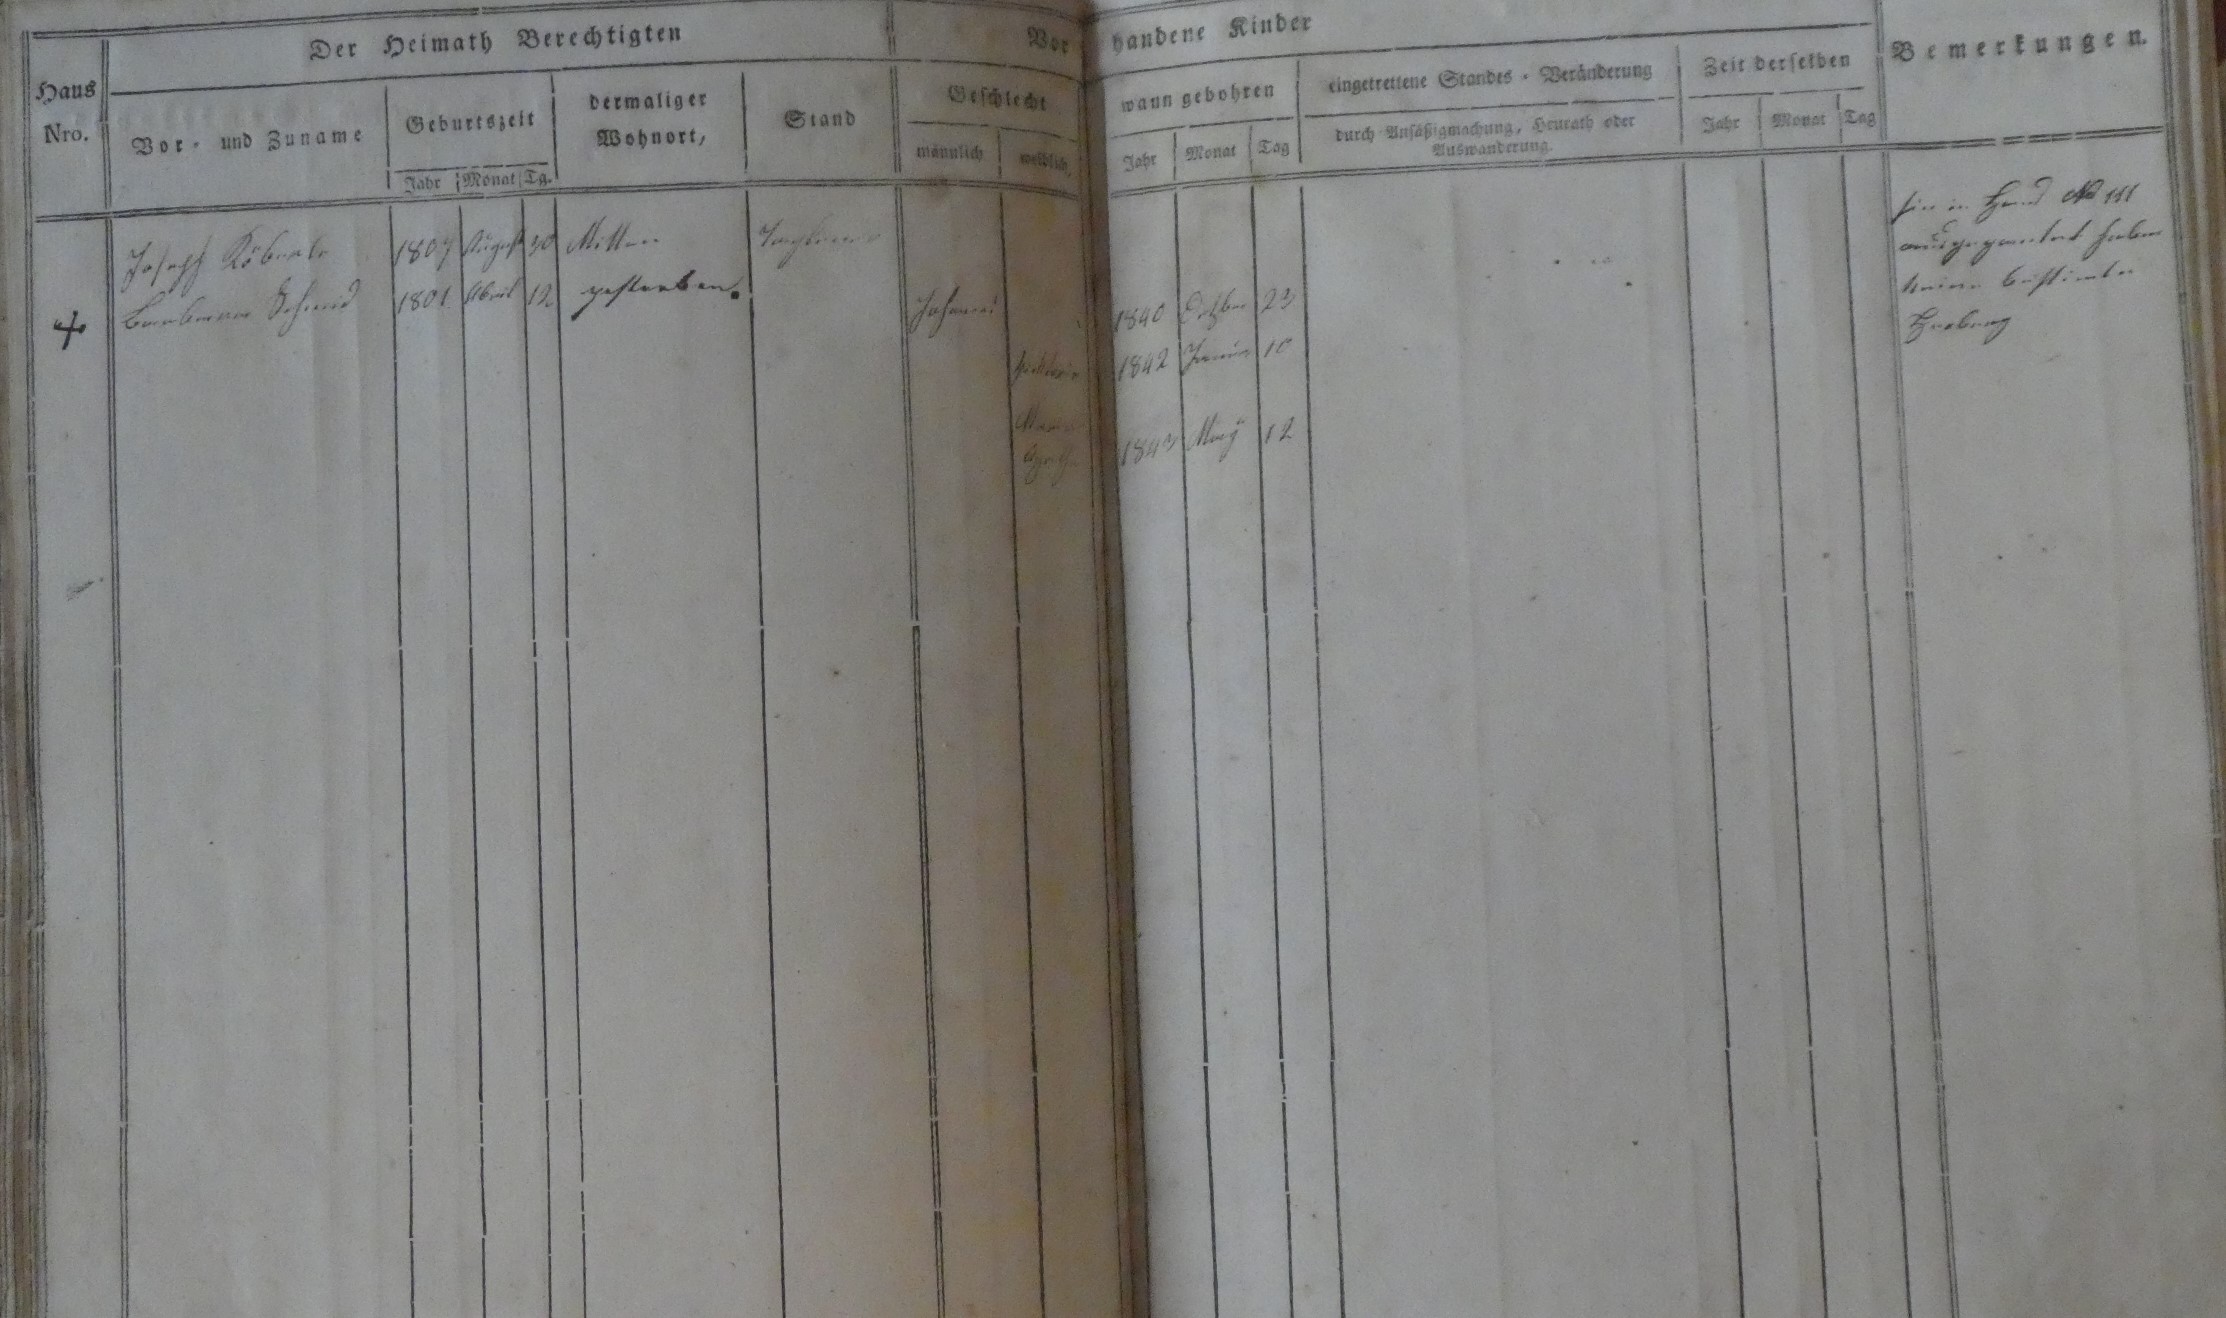 Der Heimath Berechtigten
Vorhandene Kinder
Bemerkungen.
Haus
Nro.
Vor- und Zuname
Geburtszeit
Jahr Monat Tg.
dermaliger
Wohnort,
Stand
Geschlecht
männlich weiblich,
wann gebohren
Jahr Monat Tag
eingetrettene Standes-Veränderung
durch Ansäßigmachung, Heurath oder
Auswanderung.
Zeit derselben
Jahr Monat Tag
Joseph Köberle 1807 August 30 Mitten Taglöhner
Schmid 1801 April 12 gestorben.
Johann 1840 23
1842 10
Maria 1843 May 12
Agatha
in No 111
haben
keine